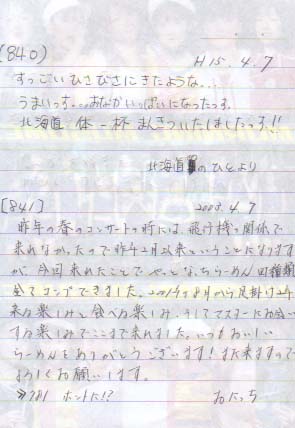 (840)
H15.4.7
すっごいひさびさにきたような...
うまいっす。...おなかいっぱいになったっす。
北海道 体一杯 まんきついたしましたっす!!
北海道のひとより
[841]
2003.4.7
昨年の春のコンサートの時には、飛行機の関係で
来れなかったので昨年2月以来ということになります
が、今回来れたことでやっとならーめん四種類
全てコンプできました。2001年8月から足掛け2年
来る楽しみと食べる楽しみ、そしてマスターにお会い
する楽しみでここまで来れました。いつもおいしい
らーめんをありがとうございます!また来ますので
よろしくお願いします。
≫781 ホントに!?
おにっち